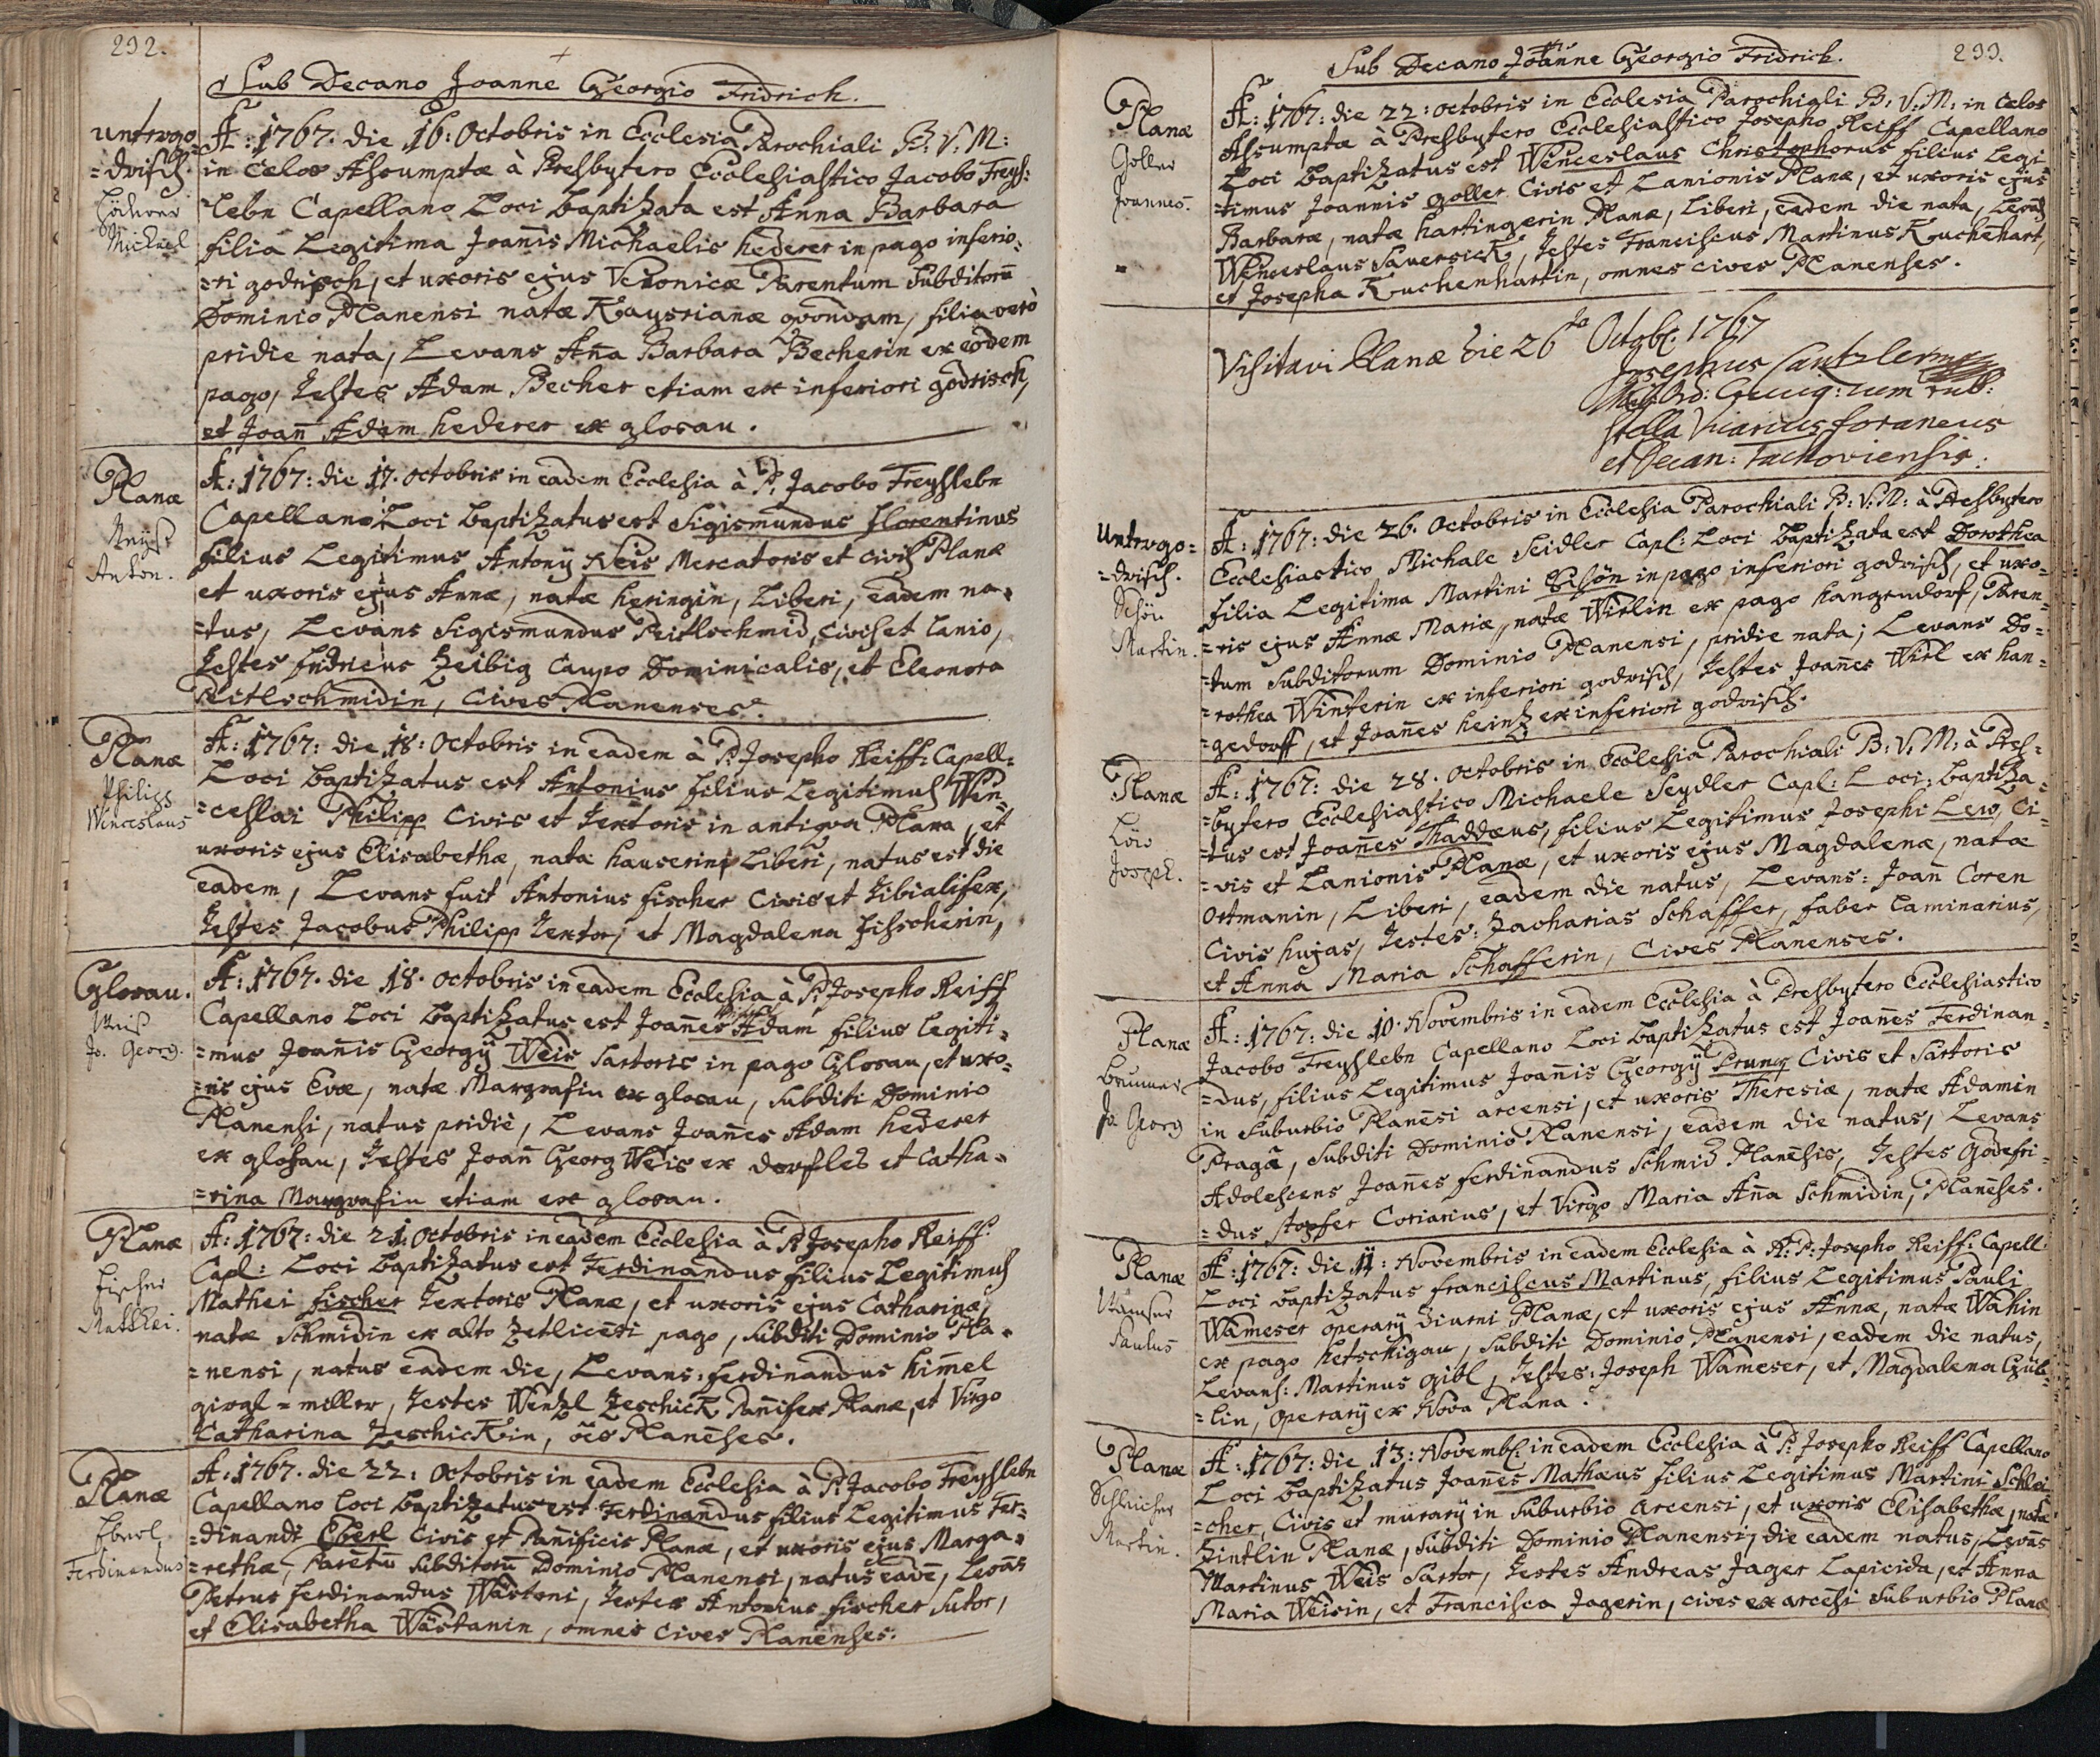 292.
Sub Decano Joanne Georgio Fridrich.
untrgo
=drisch.
Höderer
Michael
A: 1767. die 16: Octobris in Ecclesia Parochiali B: V: M:
in Cælos Assumptæ à Presbytero Ecclesiastico Jacobo Freys:
=lebn Capellano Loci baptizata est Anna Barbara
filia Legitima Joañis Michaelis hederer in pago inferio:
=ri godrisch, et uxoris ejus Veronicæ Parentum Subditorũ
Dominio Planensi natæ Kaysrianæ qvondam, filia verò
pridie nata, Levans Aña Barbara Becherin ex eodem
pago, Testes Adam Becher etiam ex inferiori godrisch,
et Joañ Adam hederer ex glosau.
Planæ
Anton.
A: 1767: die 17. octobris in eadem Ecclesia à P: Jacobo Freyslebn
Capellano Loci baptizatus est Sigismundus florentinus
filius Legitimus Antonÿ Reis Mercatoris et civis Planæ
et uxoris ejus Annæ, natæ heringin, Liberi, eadem na=
=tus, Levans Sigismundus Peitlschmid, Civis et Lanio,
Testes Zeibig Caupo Dominicalis, et Eleonora
Peitlschmidin, Cives Planenses.
Planæ
Philipp
Wenceslaus
A: 1767: die 18: Octobris in eadem à P: Josepho Reiff: Capell:
Loci baptizatus est Antonius filius Legitimus Wen
=ceslai Philipp Civis et Textoris in antiqva Plana, et
uxoris ejus Elisabethæ, natæ hauserin, Liberi, natus est die
eadem, Levans fuit Antonius fischer Civis et Tibialifex,
Testes Jacobus Philipp Textor, et Magdalena fischerin,
Glosau.
Weiß
Jo. Georg.
A: 1767. die 18. octobris in eadem Ecclesia à P: Josepho Reiff
Capellano Loci baptizatus est Joañes Adam filius legiti=
=mus Joañis Georgÿ Weis Sartoris in pago Glosau, et uxo=
=ris ejus Evæ, natæ Margrafin ex glosau, Subditi Dominio
Planensi, natus pridiè, Levans Joañes Adam hederer
ex glosau, Testes Joañ Georg Weis ex dorfles et Catha=
=rina Margrafin etiam ex glosau.
Planæ
Fischer
Matthei.
A: 1767: die 21. Octobris in eadem Ecclesia à P: Josepho Reiff.
Capl: Loci baptizatus est Ferdinandus filius Legitimus
Mathei fischer Textoris Planæ, et uxoris ejus Catharinæ,
natæ Schmidin ex alto Zetlicensi pago, Subditi Dominio Pla=
=nensi, natus eadem die, Levans: ferdinandus himel
giegl = miller, Testes Wenzl Zeschick Pañifex Planæ, et Virgo
Catharina Zeschickin, oẽs Planẽses.
Planæ
Eberl
Ferdinandus
A: 1767. die 22: Octobris in eadem Ecclesia à P: Jacobo Freyslebn
Capellano loci baptizatus est Ferdinandus filius Legitimus Fer=
=dinandi Eberl Civis et Pañificis Planæ, et uxoris ejus Marga=
=rethæ, Parẽtũ Subditorũ Dominio Planensi, natus eadẽ, Levãs
Petrus ferdinandus Wästani, Testes Antonius fischer Sutor,
et Elisabetha Wästanin, omnes cives Planenses.
293.
Sub Decano Joanne Georgio Fridrich.
Planæ
Goller
Joannes.
A: 1767: die 22: octobris in Ecclesia Parochiali B: V: M: in Cælos
Assumptæ à Presbytero Ecclesiastico Josepho Reiff Capellano
Loci baptizatus est Wenceslaus Christophorus filius Legi
=timus Joannis goller Civis et Lanionis Planæ, et uxoris ejus
Barbaræ, natæ hartingerin Planæ, Liberi, eadem die nata, Levãs
Wenceslaus Sauersick, Testes Franciscus Martinus Kuchenhart,
et Josepha Kuchenhartin, omnes cives Planenses.
Visitavi Planæ die 26ta Octobr. 1767
Josephus
rub:
stella Vicarius foraneus
et Decan: Tachoviensis.
Untrgo=
=drisch.
Schön
Martin.
A: 1767: die 26. Octobris in Ecclesia Parochiali B: V: M: à Presbytero
Ecclesiastico Michale Seidler Capl: Loci baptizata est Dorothea
filia Legitima Martini Schön in pago inferiori godrisch, et uxo=
=ris ejus Annæ Mariæ, natæ Wirlin ex pago hangendorf, Paren=
=tum Subditorum Dominio Planensi, pridie nata; Levans Do=
=rothea Winterin ex inferiori godrisch, Testes Joañes Wirl ex han=
=gedorff, et Joañes heintz ex inferiori godrisch.
Planæ
Löw
Joseph.
A: 1767: die 28. Octobris in Ecclesia Parochiali B: V: M: à Pres=
=bytero Ecclesiastico Michaele Seydler Capl: Loci: baptiza=
=tus est Joañes Thaddæus, filius Legitimus Josephi Lew, Ci=
=vis et Lanionis Planæ, et uxoris ejus Magdalenæ, natæ
Ortmanin, Liberi, eadem die natus, Levans: Joañ Coren
Civis hujas, Testes: Zacharias Schaffer, faber laminarius,
et Anna Maria Schafferin, Cives Planenses.
Planæ
Brunner
Jo. Georg
A: 1767: die 10. Novembris in eadem Ecclesia à Presbytero Ecclesiastico
Jacobo Freyslebn Capellano Loci baptizatus est Joañes Ferdinan=
=dus, filius Legitimus Joañis Georgÿ Civis et Sartoris
in Suburbio Planẽsi arcensi, et uxoris Theresiæ, natæ Adamin
Pragã, Subditi Dominio Planensi, eadem die natus, Levans
Adolescens Joañes ferdinandus Schmid Planẽsis, Testes Godefri=
=dus stopfer Coriarius, et Virgo Maria Aña Schmidin, Planẽses.
Planæ
Wameser
Paulus
A: 1767: die 11: Novembris in eadem Ecclesia à R: P: Josepho Reiff: Capell:
Loci baptizatus franciscus Martinus, filius Legitimus Pauli
Wameser operarÿ diurni Planæ, et uxoris ejus Annæ, natæ Wähin
ex pago hetschigau, Subditi Dominio Planensi, eadem die natus,
Levans: Martinus gibl, Testes: Joseph Wameser, et Magdalena Güb=
=lin, Operarÿ ex Nova Plana.
Planæ
Schleicher
Martin.
A: 1767: die 13: Novemb: in eadem Ecclesia à P: Josepho Reiff Capellano
Loci baptizatus Joañes Mathæus filius Legitimus Martini Schlei
=cher, Civis et murarÿ in Suburbio arcensi, et uxoris Elisabethæ, natæ
Zintlin Planæ, Subditi Dominio Planensi, die eadem natus, Levãs
Martinus Weis Sartor, Testes Andreas Jager Lapicida, et Anna
Maria Weisin, et Francisca Jagerin, cives ex arcẽsi Suburbio Planæ